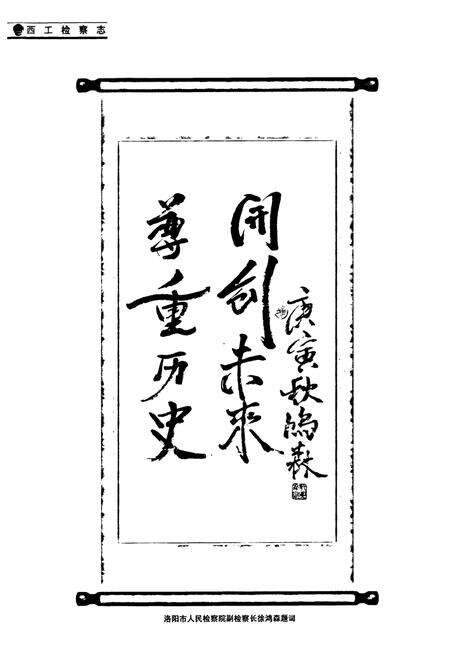 西工检察志
尊重历史
開创未来
庚寅秋鸿森
洛阳市人民检察院副检察长徐鸿森题词